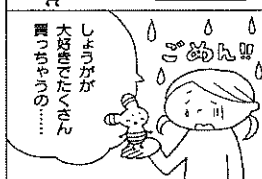 ごめん!!
しょうがが
大好きでたくさん
買っちゃうの……